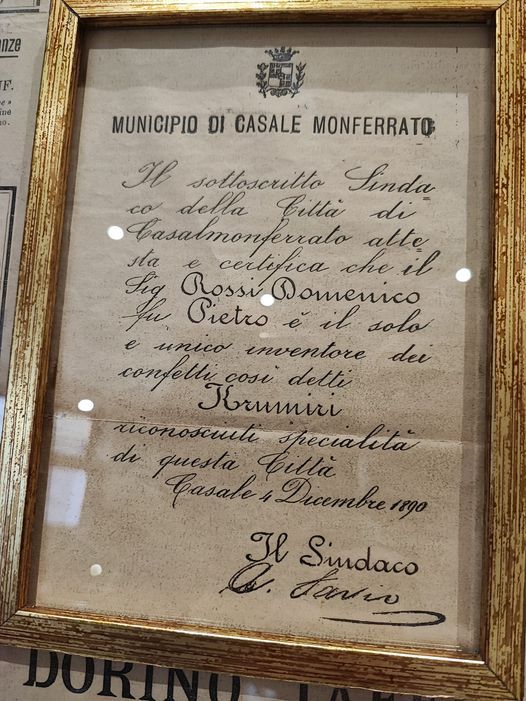 MUNICIPIO DI CASALE MONFERRATO
Il sottoscritto Sinda=
co della Città di
Casalmonferrato atte=
sta e certifica che il
Sig Rossi Domenico
fu Pietro è il solo
e unico inventore dei
confetti così detti
Krumiri
riconosciuti specialità
di questa Città
Casale 4 Dicembre 1890
Il Sindaco
DORINO